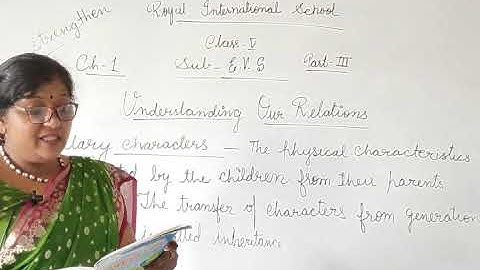 Strengthen
Royal International School
Class-V
Ch-1 Sub- E.V.S Part-III
Understanding Our Relations
characters — The physical characteristics
by the children from their parents.
The transfer of characters from generation